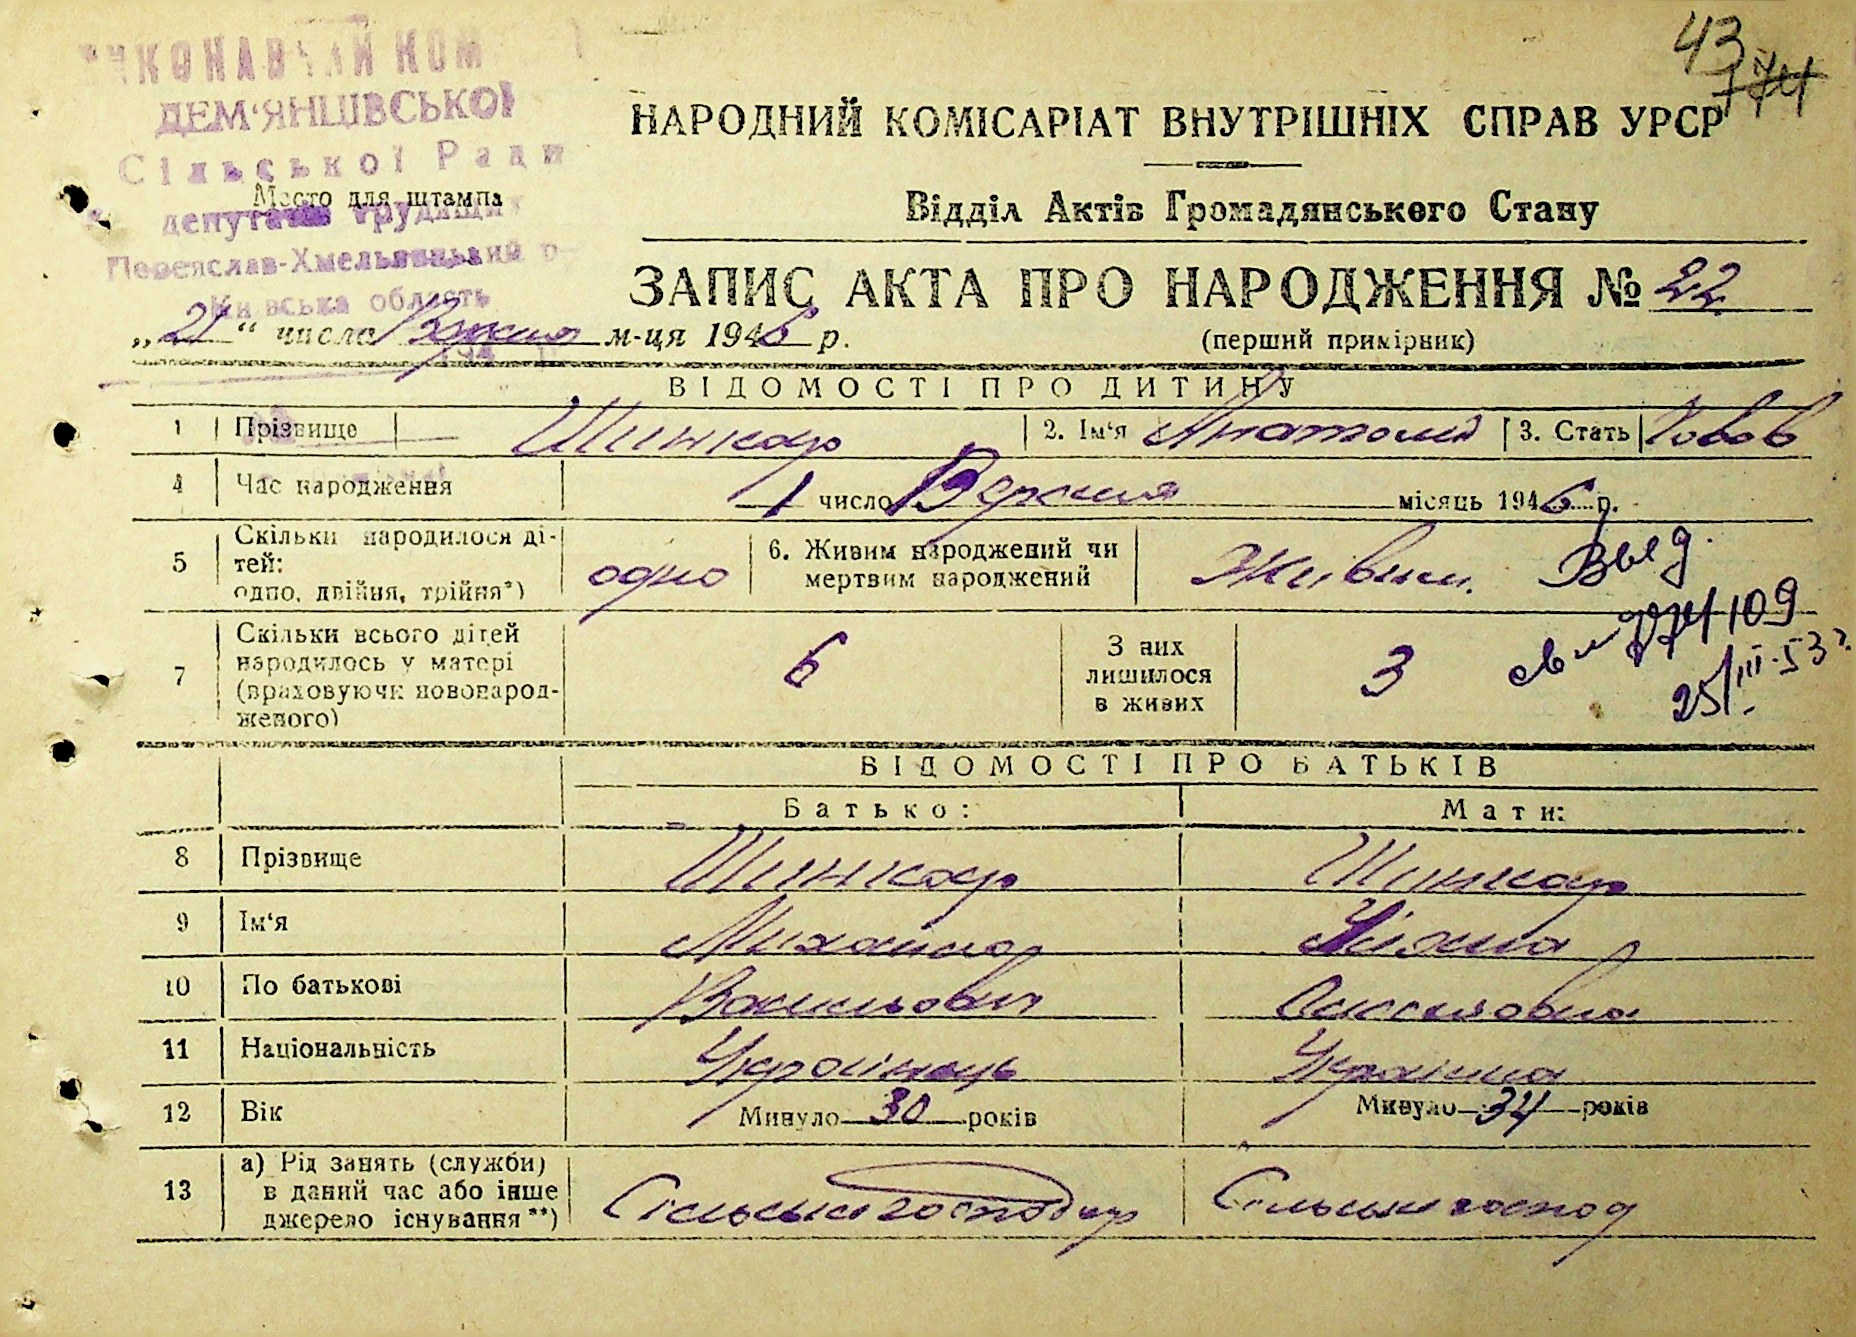 43
174
ВИКОНАВЧИЙ КОМ
ДЕМ'ЯНЦІВСЬКОЇ
Сільської Ради
депутатів трудящих
Переяслав-Хмельницький р-
Київська область
Место для штампа
НАРОДНИЙ КОМІСАРІАТ ВНУТРІШНІХ СПРАВ УРСР
Відділ Актів Громадянського Стану
ЗАПИС АКТА ПРО НАРОДЖЕННЯ № 22
„21“ число Вересня м-ця 1946 р.
(перший примірник)
ВІДОМОСТІ ПРО ДИТИНУ
1 Прізвище Шинкар 2. Ім'я Анатолій 3. Стать
4 Час народження 1 число Вересня місяць 1946 р.
5 Скільки народилося ді-
тей:
одно, двійня, трійня*) одно 6. Живим народжений чи
мертвим народжений Живим.
Выд.
109
25/III-53 г
7 Скільки всього дітей
народилось у матері
(враховуючи новонарод-
женого) 6 З них
лишилося
в живих 3
ВІДОМОСТІ ПРО БАТЬКІВ
Батько: Мати:
8 Прізвище Шинкар Шинкар
9 Ім'я Михайло Уляна
10 По батькові Васильович
11 Національність Українець Українка
12 Вік Минуло 30 років Минуло 34 років
13 а) Рід занять (служби)
в даний час або інше
джерело існування**) Сільське господар Сільське господ